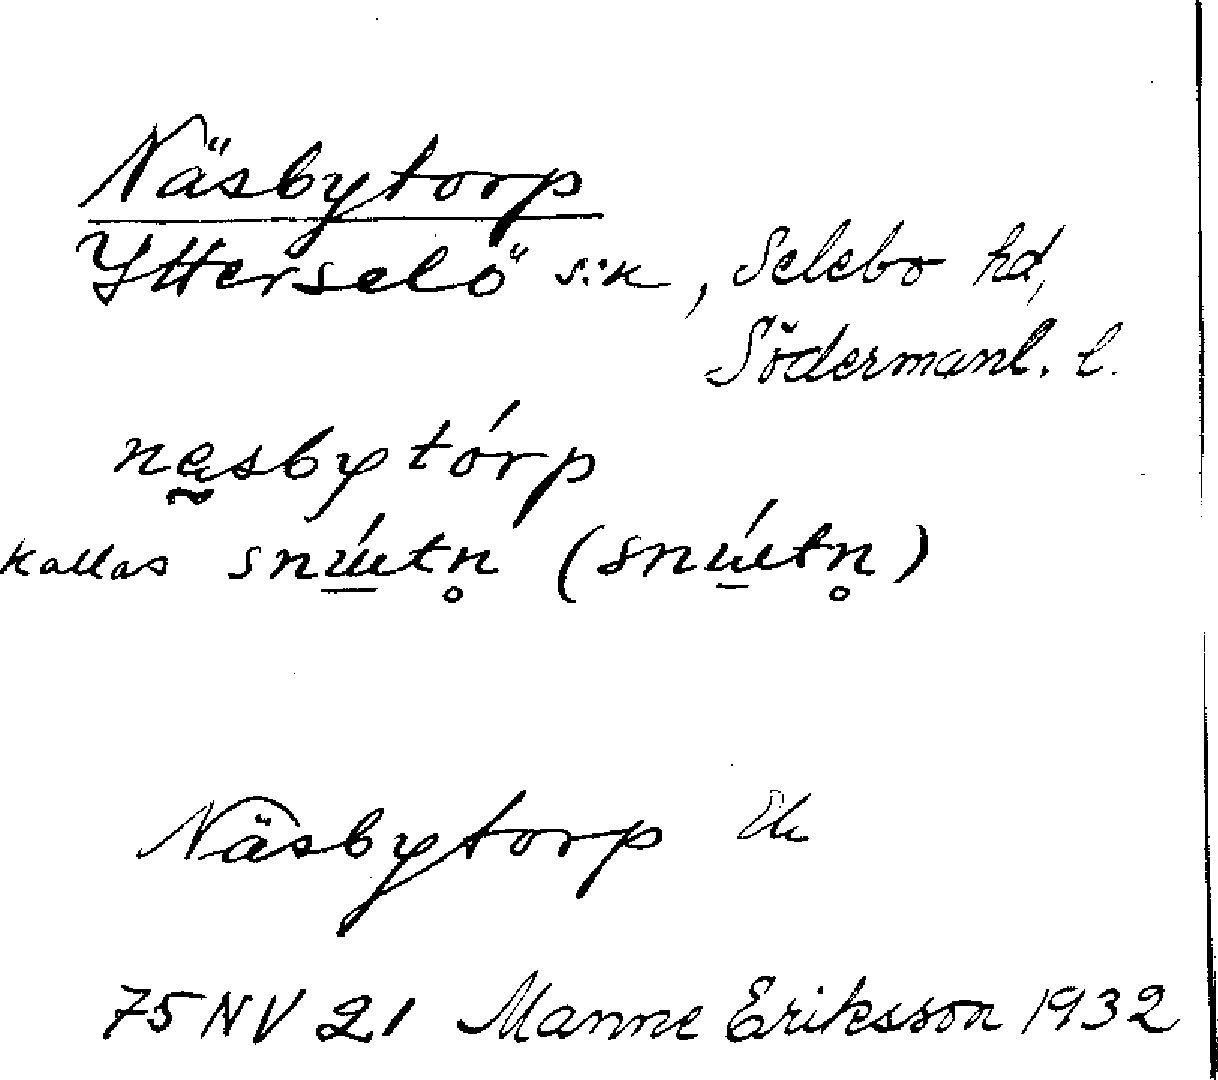 Näsbytorp
Ytterselö s:n, Selebo hd,
Södermanl. l.
näsbytórp
kallas snú̠tn̥ (snú̠tn̥)
Näsbytorp Ek
75 NV 21 Manne Eriksson 1932